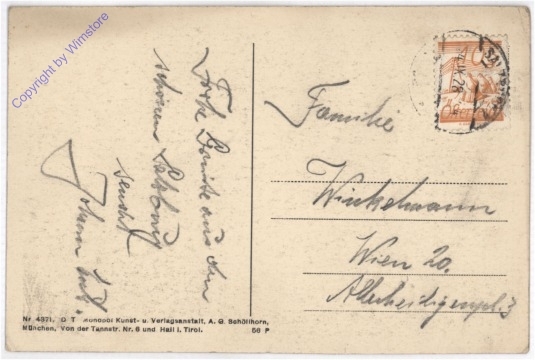 Copyright by Wimstore
aus dem
schönen Salzburg
sendet
Johann
Familie
Winkelmann
Wien 20.
Allerheiligenpl. 3
Nr. 4371.
Kunst- u. Verlagsanstalt, A. G. Schöllhorn,
München, Von der Tannstr. Nr. 6 und Hall i. Tirol.
56 P